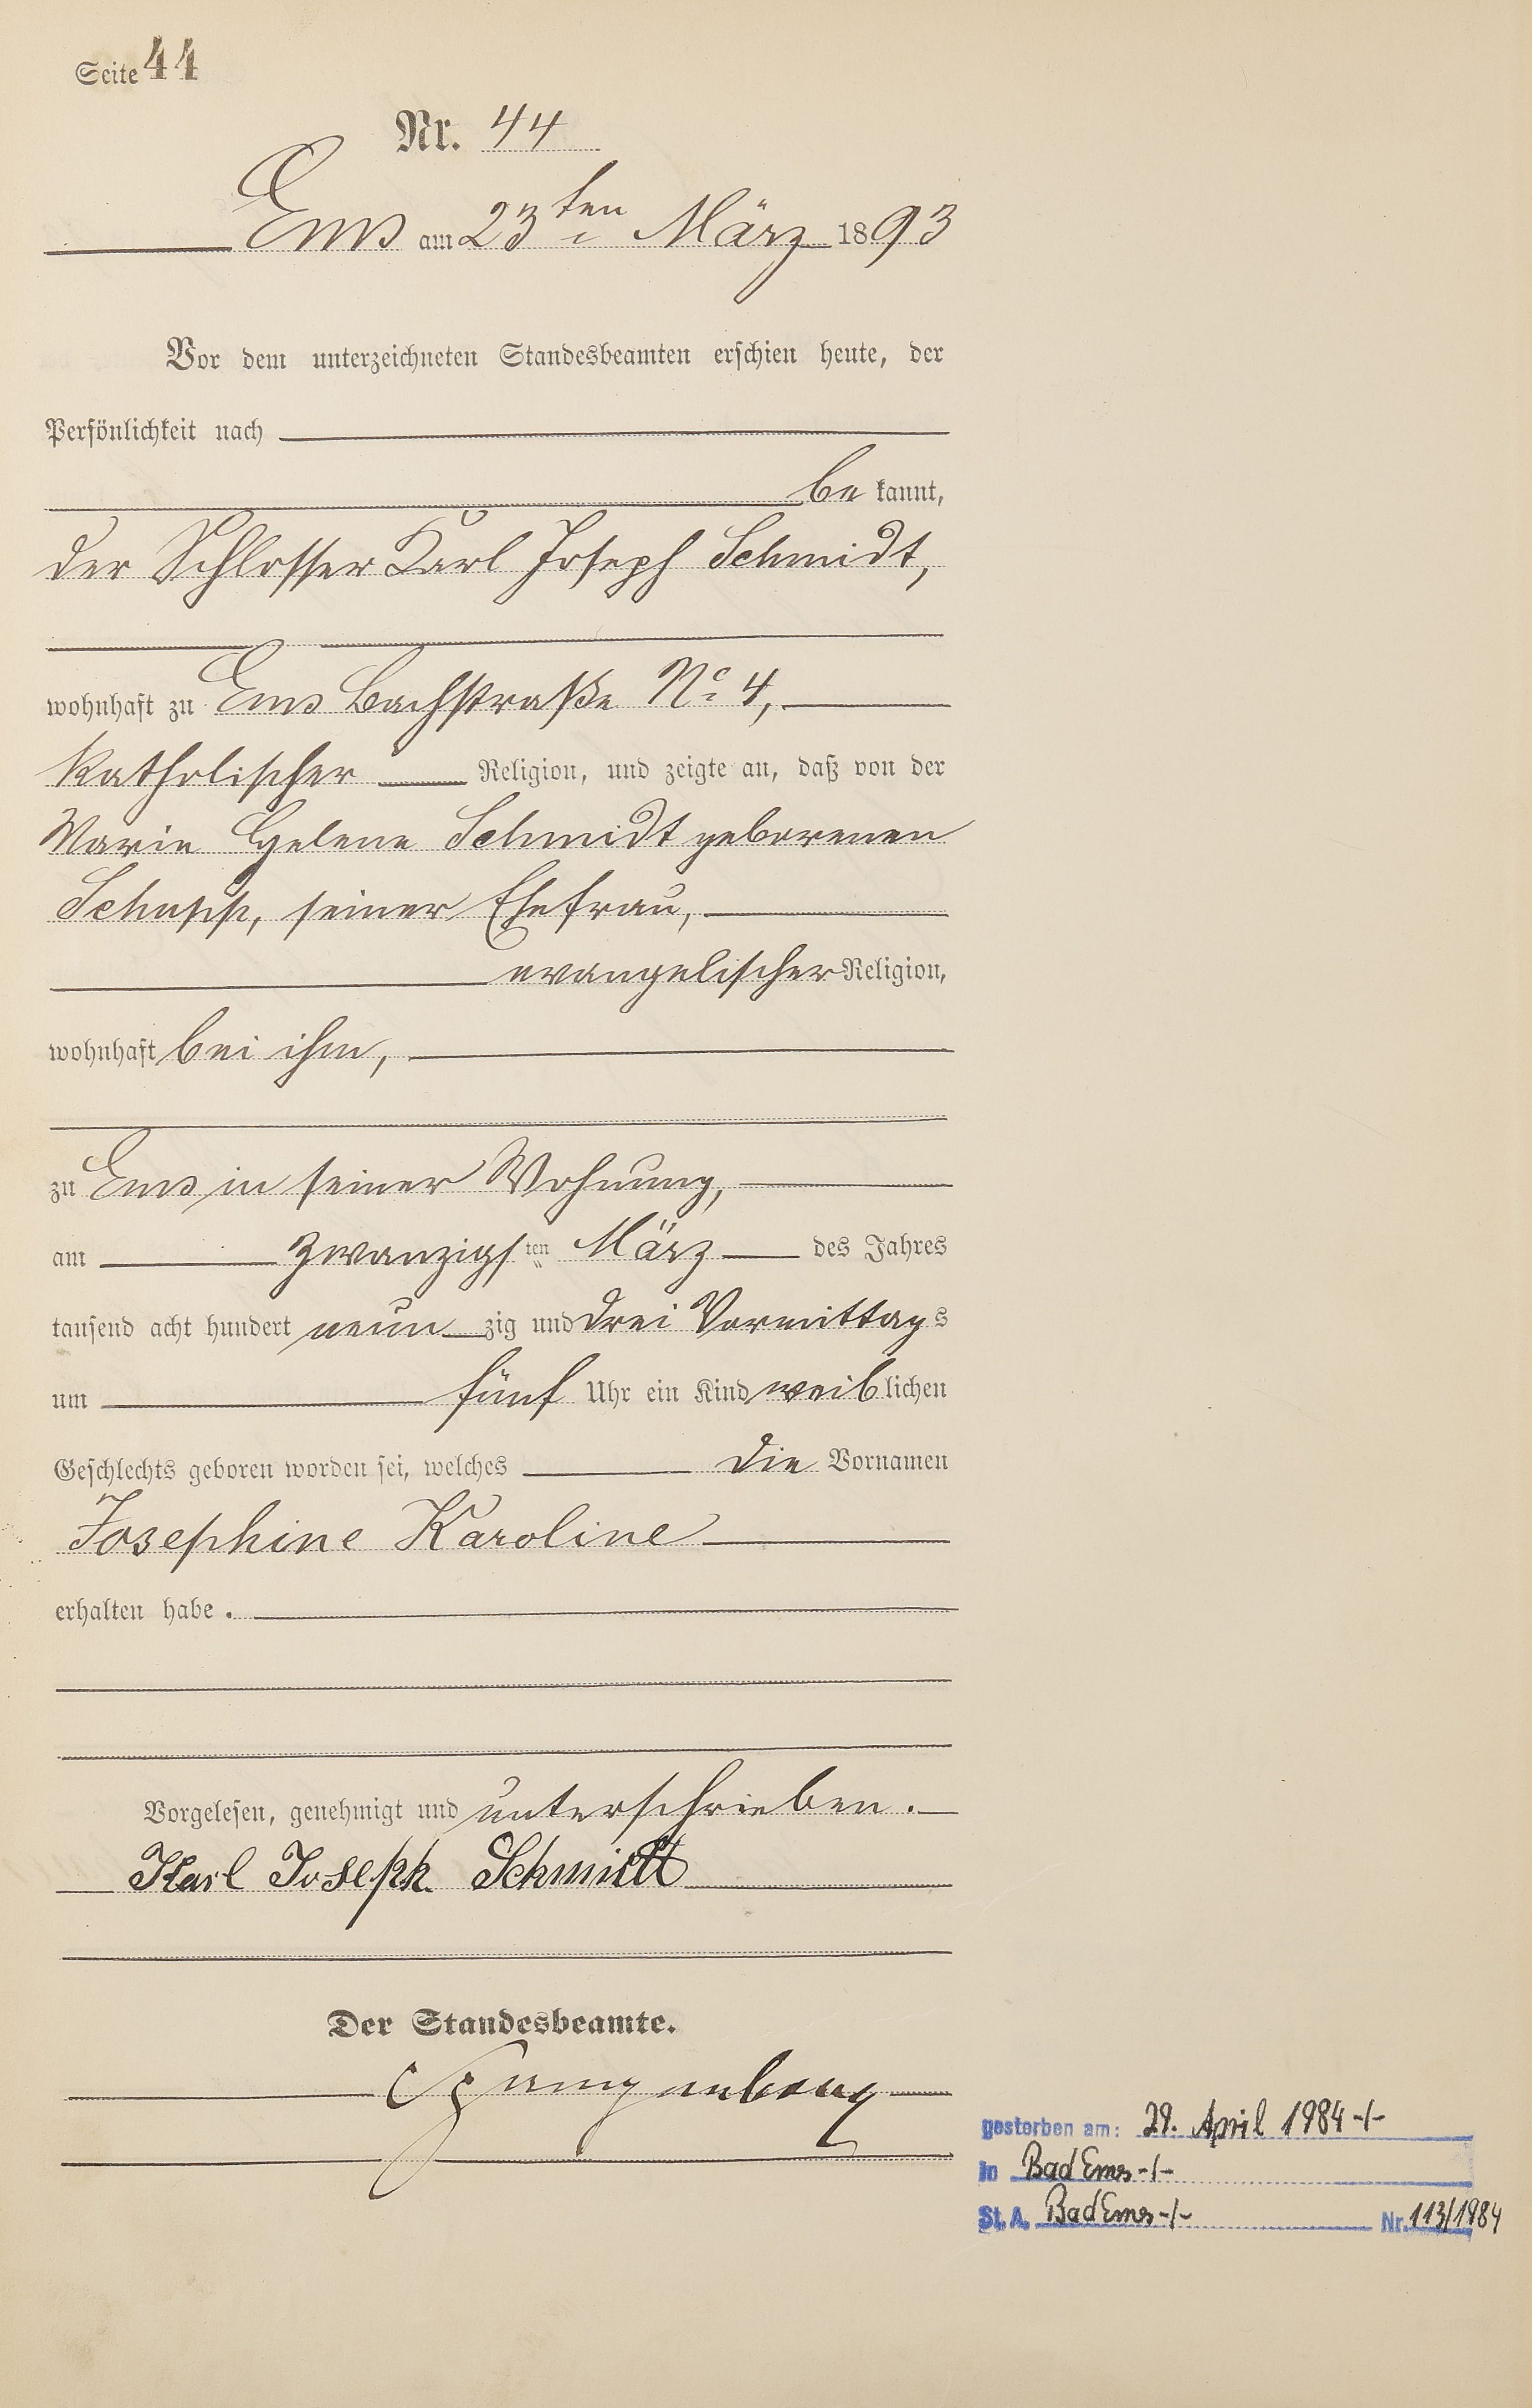 Seite 44
Nr. 44
Ems am 23ten März 1893
Vor dem unterzeichneten Standesbeamten erschien heute, der
Persönlichkeit nach
be kannt,
der Schlosser Karl Joseph Schmidt,
wohnhaft zu Ems Bachstraße No 4,
katholischer Religion, und zeigte an, daß von der
Marie Helene Schmidt geborenen
Schupp, seiner Ehefrau,
evangelischer Religion,
wohnhaft bei ihm,
zu Ems in seiner Wohnung,
am zwanzigsten März des Jahres
tausend acht hundert neun zig und drei Vormittags
um fünf Uhr ein Kind weiblichen
Geschlechts geboren worden sei, welches die Vornamen
Josephine Karoline
erhalten habe.
Vorgelesen, genehmigt und unterschrieben.
Karl Joseph Schmidt
Der Standesbeamte.
gestorben am: 29. April 1984 -/-
in Bad Ems -/-
St. A. Bad Ems -/- Nr. 113/1984